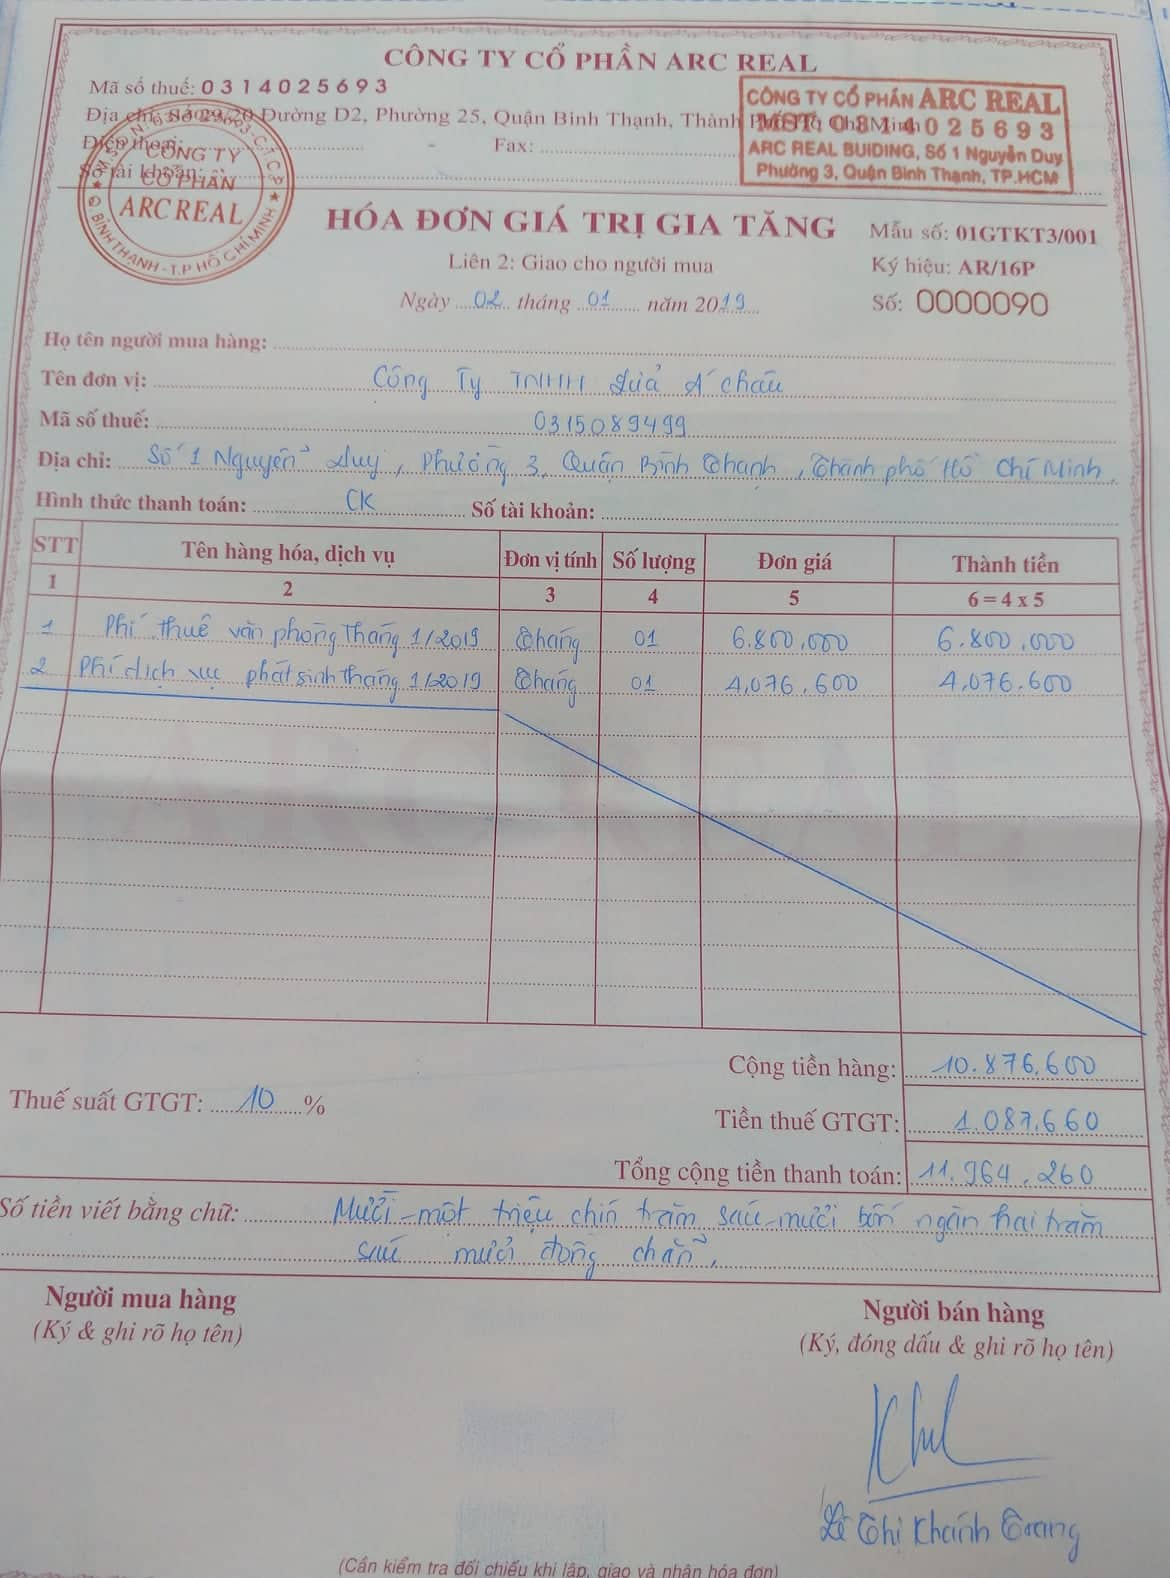 CÔNG TY CỔ PHẦN ARC REAL
Mã số thuế: 0314025693
Địa chỉ: Số 29/20 Đường D2, Phường 25, Quận Bình Thạnh, Thành Phố Hồ Chí Minh
Điện thoại: Fax:
Số tài khoản:
CÔNG TY CỔ PHẦN ARC REAL
MST: 0314025693
ARC REAL BUIDING, Số 1 Nguyễn Duy
Phường 3, Quận Bình Thạnh, TP.HCM
CÔNG TY
CỔ PHẦN
ARC REAL
Q BÌNH THẠNH - T.P HỒ CHÍ MINH
HÓA ĐƠN GIÁ TRỊ GIA TĂNG
Mẫu số: 01GTKT3/001
Liên 2: Giao cho người mua
Ký hiệu: AR/16P
Ngày 02 tháng 01 năm 2019
Số: 0000090
Họ tên người mua hàng:
Tên đơn vị: Công Ty TNHH Á Châu
Mã số thuế: 0315089499
Địa chỉ: Số 1 Nguyễn Duy, Phường 3, Quận Bình Thạnh, Thành phố Hồ Chí Minh.
Hình thức thanh toán: CK Số tài khoản:
STT Tên hàng hóa, dịch vụ Đơn vị tính Số lượng Đơn giá Thành tiền
1 2 3 4 5 6 = 4 x 5
1 Phí thuê văn phòng tháng 1/2019 Tháng 01 6.800.000 6.800.000
2 Phí dịch vụ phát sinh tháng 1/2019 Tháng 01 4,076.600 4,076.600
ARC REAL
Cộng tiền hàng: 10.876.600
Thuế suất GTGT: 10 % Tiền thuế GTGT: 1.087.660
Tổng cộng tiền thanh toán: 11.964.260
Số tiền viết bằng chữ: Mười một triệu chín trăm sáu mươi bốn ngàn hai trăm
sáu mươi đồng chẵn.
Người mua hàng Người bán hàng
(Ký & ghi rõ họ tên) (Ký, đóng dấu & ghi rõ họ tên)
Lê Thị Khánh Trang
(Cần kiểm tra đối chiếu khi lập, giao và nhận hóa đơn)